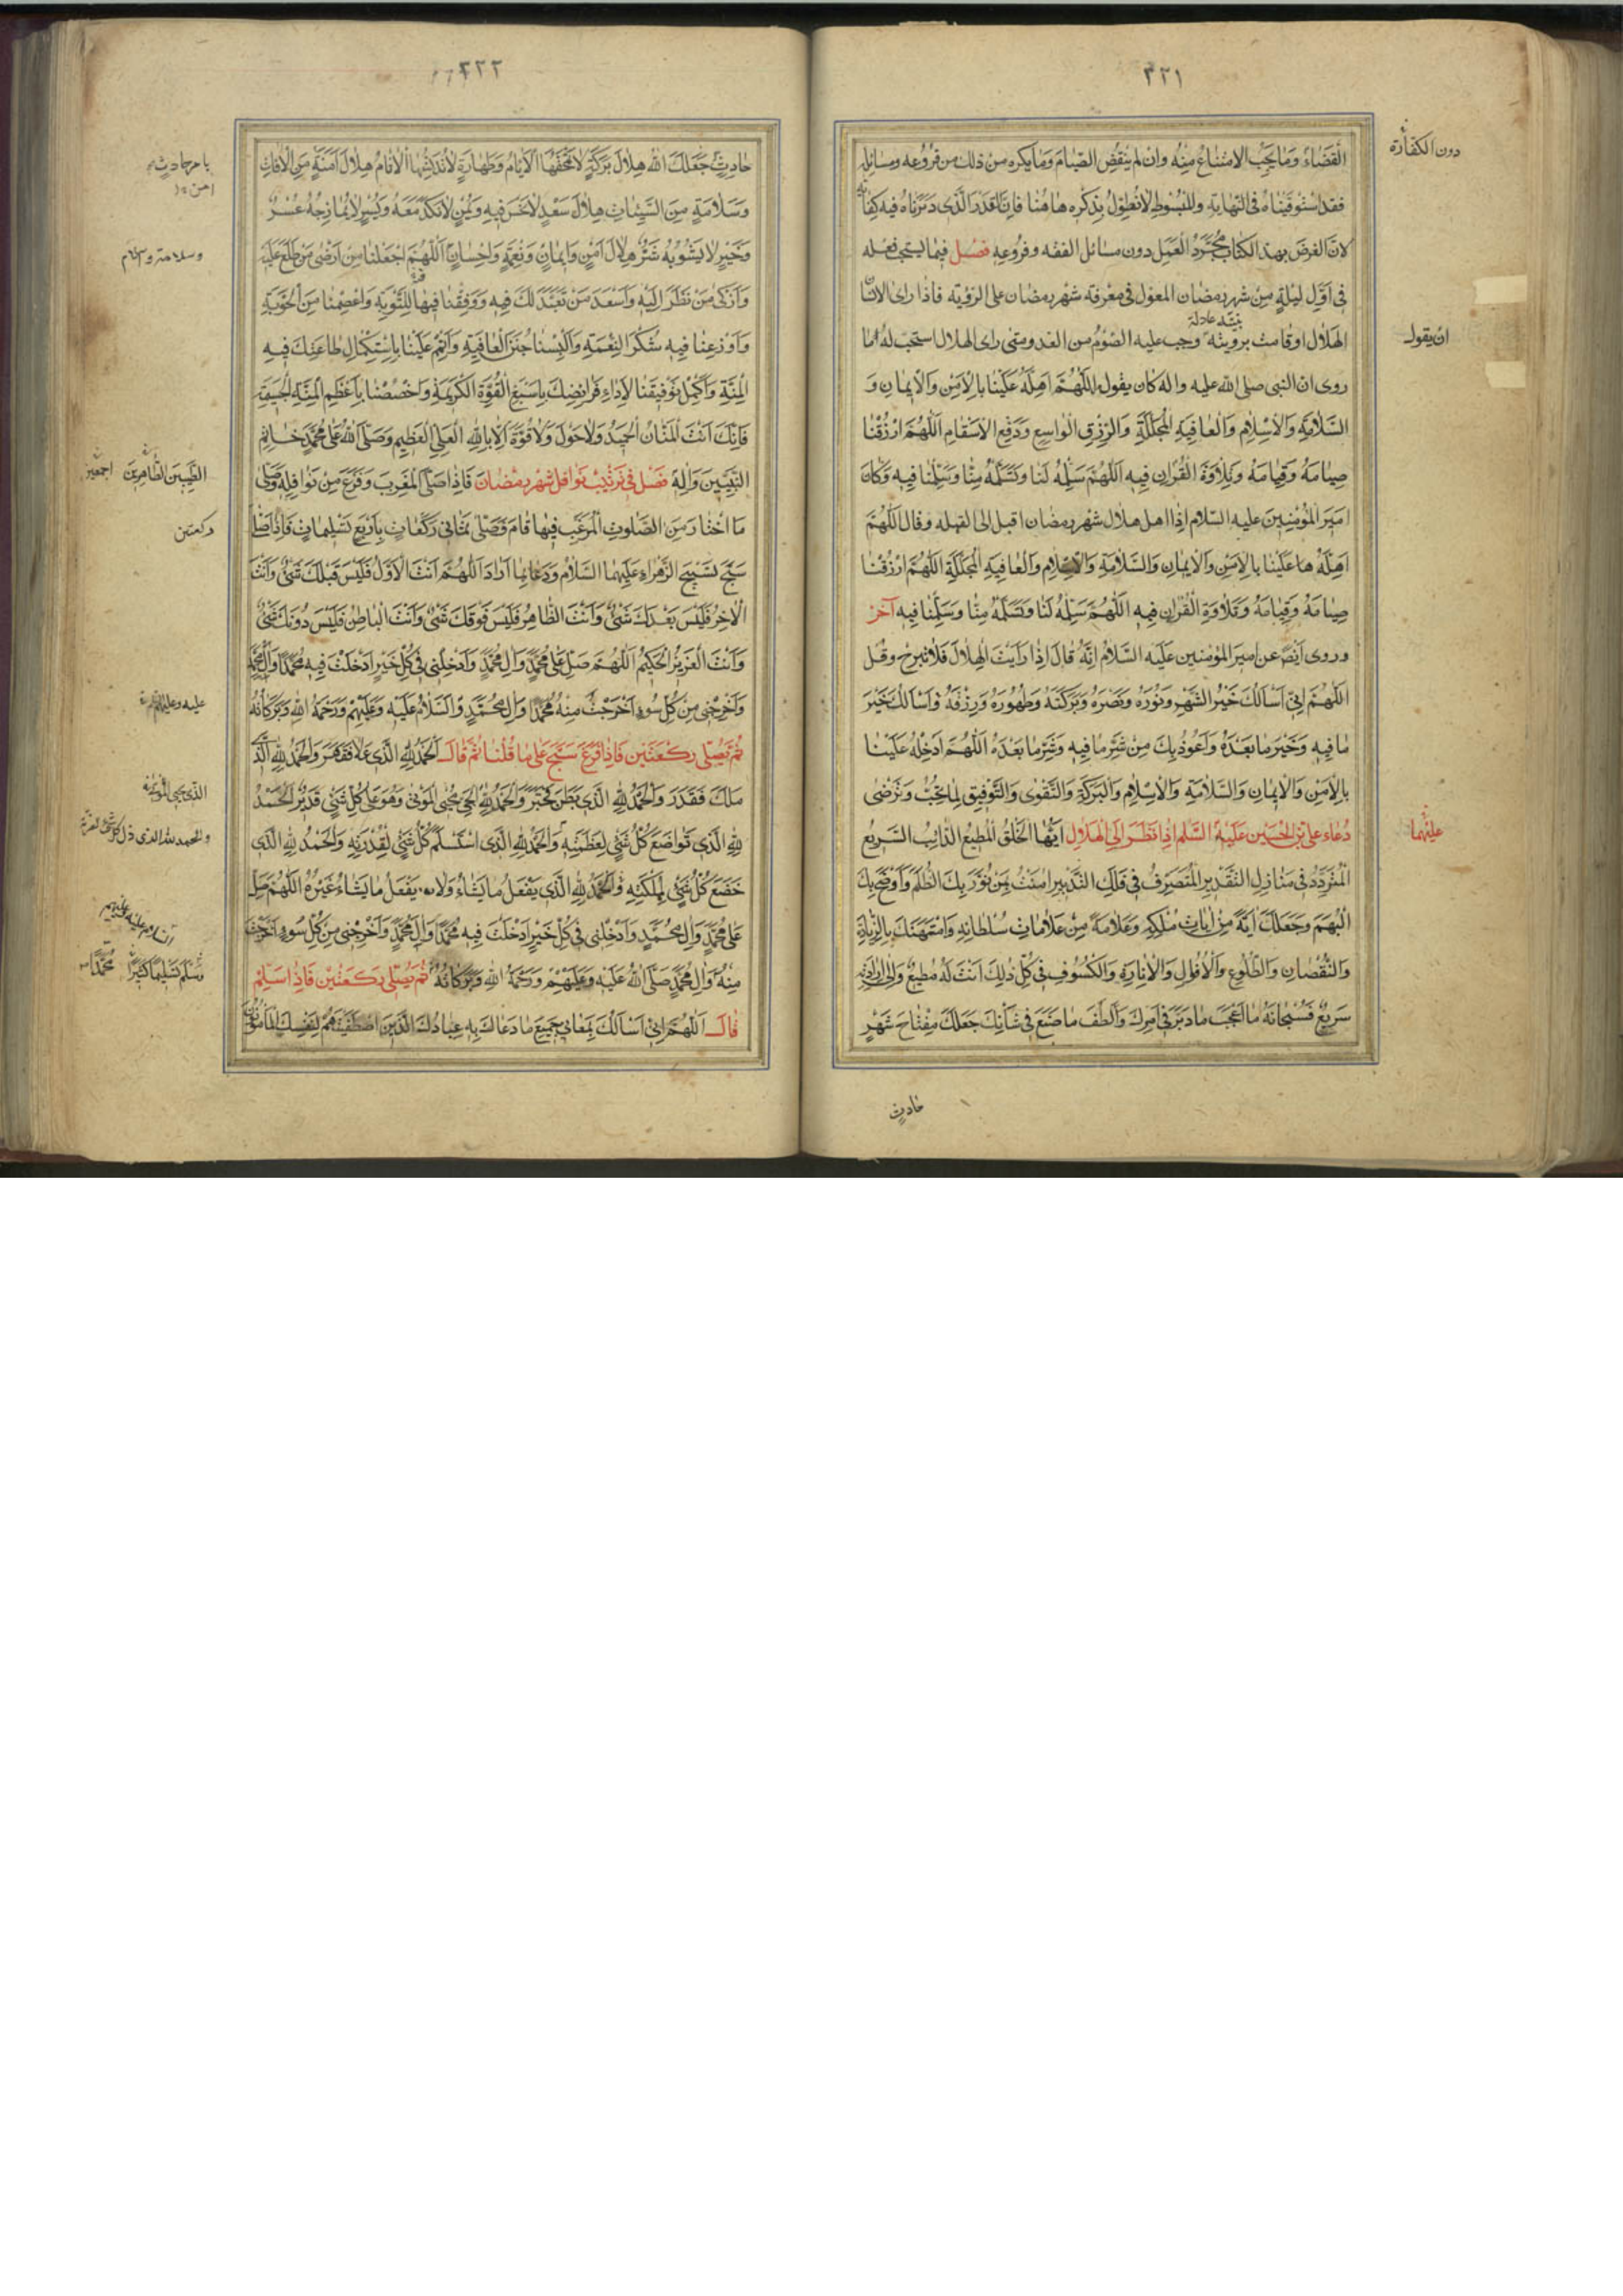 ٣٢١
القَضَاءُ وَمَا يَجِبُ الامْتِناعُ مِنْهُ وان لم يَنقُضِ الصِّيامَ وَمَا يكره من ذلك من فُرُوعِه ومسائِلِه
دون الكفارة
فقد استوفيناه فى النهاية والمبسوط لا نُطوِّلُ بذكره هاهُنا فانّ القدر الّذى ذكرناه فيه كفاية
لانّ الغرضَ بهذا الكتاب مُجَرَّدُ العَمَلِ دون مسائل الفقه وفروعه فصل فيما يستحبّ فعله
فى اوّل ليلةٍ من شهر رمضان المعول فى معرفة شهر رمضان على الرّؤية فاذا راى الانسان
بيّنة عادلة
الهلال او قامت برؤيته وجب عليه الصّوم من الغد ومتى راى الهلال استحب له اما
ان يقول
روى ان النبى صلى الله عليه واله كان يقول اللّهُمَّ اَهِلَّهُ عَلَيْنا بِالاَمْنِ وَالايمانِ وَ
السَّلامَةِ وَالاِسْلامِ وَالعافِيَةِ المُجَلَّلَةِ وَالرِّزْقِ الواسِعِ وَدَفْعِ الاَسْقامِ اَللّهُمَّ ارْزُقْنا
صِيامَهُ وَقِيامَهُ وَتِلاوَةَ القُرْانِ فيهِ اَللّهُمَّ سَلِّمْهُ لَنا وَتَسَلَّمْهُ مِنّا وَسَلِّمْنا فيهِ وَكانَ
اميرَ المُؤْمِنِينَ عليه السّلام اِذا اهل هلال شهر رمضان اقبل الى القبله وقال اللّهُمَّ
اَهِلَّهُ عَلَيْنا بِالاَمْنِ وَالايمانِ وَالسَّلامَةِ وَالاِسْلامِ وَالعافِيَةِ المُجَلَّلَةِ اَللّهُمَّ ارْزُقْنا
صِيامَهُ وَقِيامَهُ وَتِلاوَةَ القُرْانِ فيهِ اَللّهُمَّ سَلِّمْهُ لَنا وَتَسَلَّمْهُ مِنّا وَسَلِّمْنا فيهِ آخر
وروى ايضً عن امير المؤمنين عليه السّلام انّه قال اِذا رَاَيْتَ الهِلالَ فَلا تَبْرَحْ وقُل
اَللّهُمَّ اِنّى اَسْاَلُكَ خَيْرَ الشَّهْرِ وَنُورَهُ وَنَصْرَهُ وَبَرَكَتَهُ وَطَهُورَهُ وَرِزْقَهُ وَاَسْاَلُكَ خَيْرَ
ما فيهِ وَخَيْرَ ما بَعْدَهُ وَاَعُوذُ بِكَ مِنْ شَرِّ ما فيهِ وَشَرِّ ما بَعْدَهُ اَللّهُمَّ اَدْخِلْهُ عَلَيْنا
بِالاَمْنِ وَالايمانِ وَالسَّلامَةِ وَالاِسْلامِ وَالبَرَكَةِ وَالتَّقْوى وَالتَّوْفيقِ لِما تُحِبُّ وَتَرْضى
دُعاء على بن الحُسَين عَلَيْهِ السَّلم اِذا نَظَرَ اِلَى الهِلالِ اَيُّهَا الخَلْقُ المُطيعُ الدّائِبُ السَّريعُ
عليهما
المُتَرَدِّدُ فى مَنازِلِ التَّقْديرِ المُتَصَرِّفُ فى فَلَكِ التَّدْبيرِ امَنْتُ بِمَنْ نَوَّرَ بِكَ الظُّلَمَ وَاَوْضَحَ بِكَ
البُهَمَ وَجَعَلَكَ ايَةً مِنْ اياتِ مُلْكِهِ وَعَلامَةً مِنْ عَلاماتِ سُلْطانِهِ وَامْتَهَنَكَ بِالزِّيادَةِ
وَالنُّقْصانِ وَالطُّلُوعِ وَالاُفُولِ وَالاِنارَةِ وَالكُسُوفِ فى كُلِّ ذلِكَ اَنْتَ لَهُ مُطيعٌ وَاِلى اِرادَتِهِ
سَريعٌ فَسُبْحانَهُ ما اَعْجَبَ ما دَبَّرَ فى اَمْرِكَ وَاَلْطَفَ ما صَنَعَ فى شَاْنِكَ جَعَلَكَ مِفْتاحَ شَهْرٍ
حادثٍ
٣٢٢
حادِثٍ جَعَلَكَ اللهُ هِلالَ بَرَكَةٍ لا تَمْحَقُهَا الاَيّامُ وَطَهارَةٍ لا تُدَنِّسُهَا الاثامُ هِلالَ اَمَنَةٍ مِنَ الافاتِ
وَسَلامَةٍ مِنَ السَّيِّئاتِ هِلالَ سَعْدٍ لا نَحْسَ فيهِ وَيُمْنٍ لا نَكَدَ مَعَهُ وَيُسْرٍ لا يُمازِجُهُ عُسْرٌ
وَخَيْرٍ لا يَشُوبُهُ شَرٌّ هِلالَ اَمْنٍ وَايمانٍ وَنِعْمَةٍ وَاِحْسانٍ اَللّهُمَّ اجْعَلْنا مِنْ اَرْضى مَنْ طَلَعَ عَلَيْهِ
وسلامة واسلام
وَاَزْكى مَنْ نَظَرَ اِلَيْهِ وَاَسْعَدَ مَنْ تَعَبَّدَ لَكَ فيهِ وَوَفِّقْنا فيها لِلتَّوْبَةِ وَاعْصِمْنا مِنَ الحَوْبَةِ
وَاَوْزِعْنا فيهِ شُكْرَ النِّعْمَةِ وَاَلْبِسْنا جُنَنَ العافِيَةِ وَاَتْمِمْ عَلَيْنا بِاسْتِكْمالِ طاعَتِكَ فيهِ
المِنَّةَ وَاَكْمِلْ تَوْفيقَنا لِاَداءِ فَرائِضِكَ بِاَسْبَغِ القُوَّةِ الكَريمَةِ وَاخْصُصْنا بِاَعْظَمِ المِنَّةِ
فَاِنَّكَ اَنْتَ المَنّانُ الحَميدُ وَلا حَوْلَ وَلا قُوَّةَ اِلّا بِاللهِ العَلِىِّ العَظيمِ وَصَلَّى اللهُ عَلى مُحَمَّدٍ خاتَمِ
النَّبِيّينَ وَالِهِ فصل فى ترتيب نوافل شهر رمضان فاذا صَلّى المَغْرِبَ وَفَرَغَ مِنْ نَوافِلِهِ وَصَلّى
الطّيّبين الطّاهرين اجمعين
ما اختارَ مِنَ الصَّلَواتِ المُرَغَّبِ فيها قامَ فَصَلّى ثَمانى رَكَعاتٍ بِاَرْبَعِ تَسْليماتٍ فَاِذا صَلّى
ركعتين
سَبَّحَ تَسْبيحَ الزَّهْراءِ عَلَيْهَا السَّلامُ وَدَعا بِما اَرادَ اَللّهُمَّ اَنْتَ الاَوَّلُ فَلَيْسَ قَبْلَكَ شَىْءٌ وَاَنْتَ
الاخِرُ فَلَيْسَ بَعْدَكَ شَىْءٌ وَاَنْتَ الظّاهِرُ فَلَيْسَ فَوْقَكَ شَىْءٌ وَاَنْتَ الباطِنُ فَلَيْسَ دُونَكَ شَىْءٌ
وَاَنْتَ العَزيزُ الحَكيمُ اَللّهُمَّ صَلِّ عَلى مُحَمَّدٍ وَالِ مُحَمَّدٍ وَاَدْخِلْنى فى كُلِّ خَيْرٍ اَدْخَلْتَ فيهِ مُحَمَّدًا وَالَ مُحَمَّدٍ
وَاَخْرِجْنى مِنْ كُلِّ سُوءٍ اَخْرَجْتَ مِنْهُ مُحَمَّدًا وَالَ مُحَمَّدٍ وَالسَّلامُ عَلَيْهِ وَعَلَيْهِمْ وَرَحْمَةُ اللهِ وَبَرَكاتُهُ
ثُمَّ تصلّى ركعتين فاذا فرغ سبّح على ما قلنا ثمّ قال اَلحَمْدُ لِلّهِ الَّذى عَلا فَقَهَرَ وَالحَمْدُ لِلّهِ الَّذى
مَلَكَ فَقَدَرَ وَالحَمْدُ لِلّهِ الَّذى بَطَنَ فَخَبَرَ وَالحَمْدُ لِلّهِ الَّذى يُحْيِى المَوْتى وَهُوَ عَلى كُلِّ شَىْءٍ قَديرٌ الحَمْدُ
لِلّهِ الَّذى تَواضَعَ كُلُّ شَىْءٍ لِعَظَمَتِهِ وَالحَمْدُ لِلّهِ الَّذى اسْتَسْلَمَ كُلُّ شَىْءٍ لِقُدْرَتِهِ وَالحَمْدُ لِلّهِ الَّذى
والحمد لله الذى ذل كل شئ لعزته
خَضَعَ كُلُّ شَىْءٍ لِمَلَكَتِهِ وَالحَمْدُ لِلّهِ الَّذى يَفْعَلُ ما يَشاءُ وَلا يَفْعَلُ ما يَشاءُ غَيْرُهُ اَللّهُمَّ صَلِّ
عَلى مُحَمَّدٍ وَالِ مُحَمَّدٍ وَاَدْخِلْنى فى كُلِّ خَيْرٍ اَدْخَلْتَ فيهِ مُحَمَّدًا وَالَ مُحَمَّدٍ وَاَخْرِجْنى مِنْ كُلِّ سُوءٍ اَخْرَجْتَ
السلام عليه وعليهم
مِنْهُ وَالَ مُحَمَّدٍ صَلَّى اللهُ عَلَيْهِ وَعَلَيْهِمْ وَرَحْمَةُ اللهِ وَبَرَكاتُهُ ثم تصلّى ركعتين فاذا سلّم
محمّدًا وسلّم تسليمًا كثيرًا
قال اَللّهُمَّ اِنّى اَسْاَلُكَ بِمَعانى جَميعِ ما دَعاكَ بِهِ عِبادُكَ الَّذينَ اصْطَفَيْتَهُمْ لِنَفْسِكَ المَأْمُونُونَ